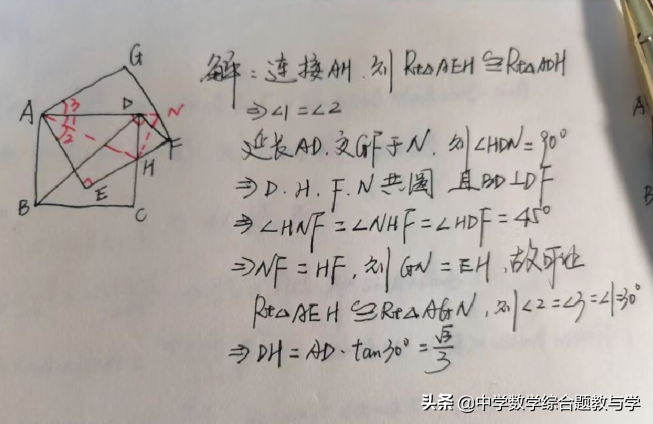 解：连接AH，则Rt△AEH≌Rt△ADH
⇒∠1=∠2
延长AD，交GF于N，则∠HDN=90°
⇒D、H、F、N共圆 且BD⊥DF
⇒∠HNF=∠NHF=∠HDF=45°
⇒NF=HF，则GN=EH，故可证
Rt△AEH≌Rt△AGN，则∠2=∠3=∠1=30°
⇒DH=AD·tan30°=√3/3
G
A
3
1
2
D
N
F
H
E
B
C
A
头条 @中学数学综合题教与学